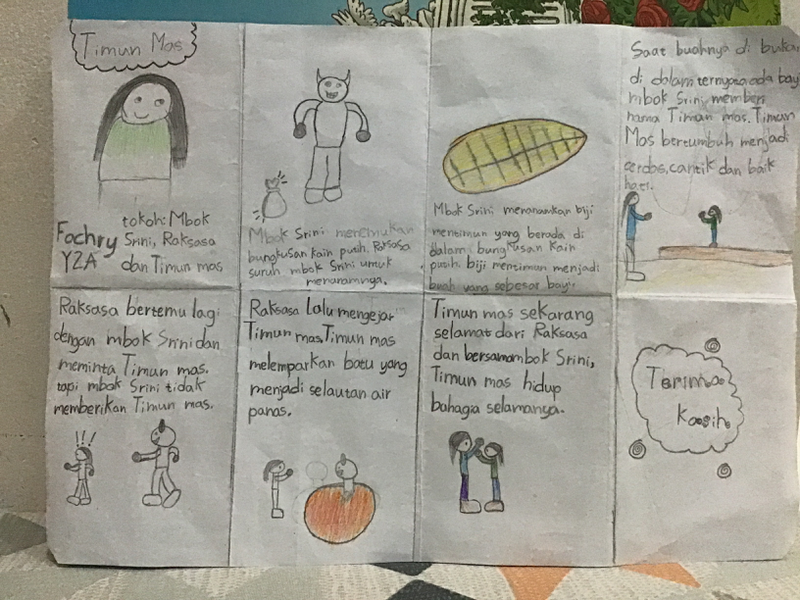 Timun Mas
tokoh: Mbok
Srini, Raksasa
dan Timun mas
Fachry
Y2A
Mbok Srini menemukan
bungkusan kain putih. Raksasa
suruh mbok Srini untuk
menanamnya.
Mbok Srini menanamkan biji
mentimun yang berada di
dalam bungkusan kain
putih. biji mentimun menjadi
buah yang sebesar bayi.
Saat buahnya di buka
di dalam ternyata ada bayi
mbok Srini memberi
nama Timun mas. Timun
Mas bertumbuh menjadi
cerdas, cantik dan baik
hati.
Raksasa bertemu lagi
dengan mbok Srini dan
meminta Timun mas.
tapi mbok Srini tidak
memberikan Timun mas.
!!
Raksasa lalu mengejar
Timun mas, Timun mas
melemparkan batu yang
menjadi selautan air
panas.
Timun mas sekarang
selamat dari Raksasa
dan bersama mbok Srini,
Timun mas hidup
bahagia selamanya.
Terima
Kasih